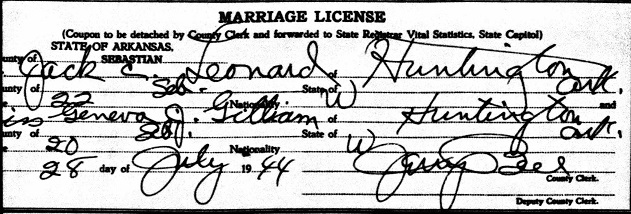 MARRIAGE LICENSE
(Coupon to be detached by County Clerk and forwarded to State Registrar Vital Statistics, State Capitol)
STATE OF ARKANSAS,
SEBASTIAN
unty of
Jack C. Leonard of Huntington
unty of Seb. State of Ark.
22 Nationality W and
iss Geneva J. Gilliam of Huntington
unty of Seb. State of Ark.
20 Nationality W
28 day of July 19 44
County Clerk.
Deputy County Clerk.